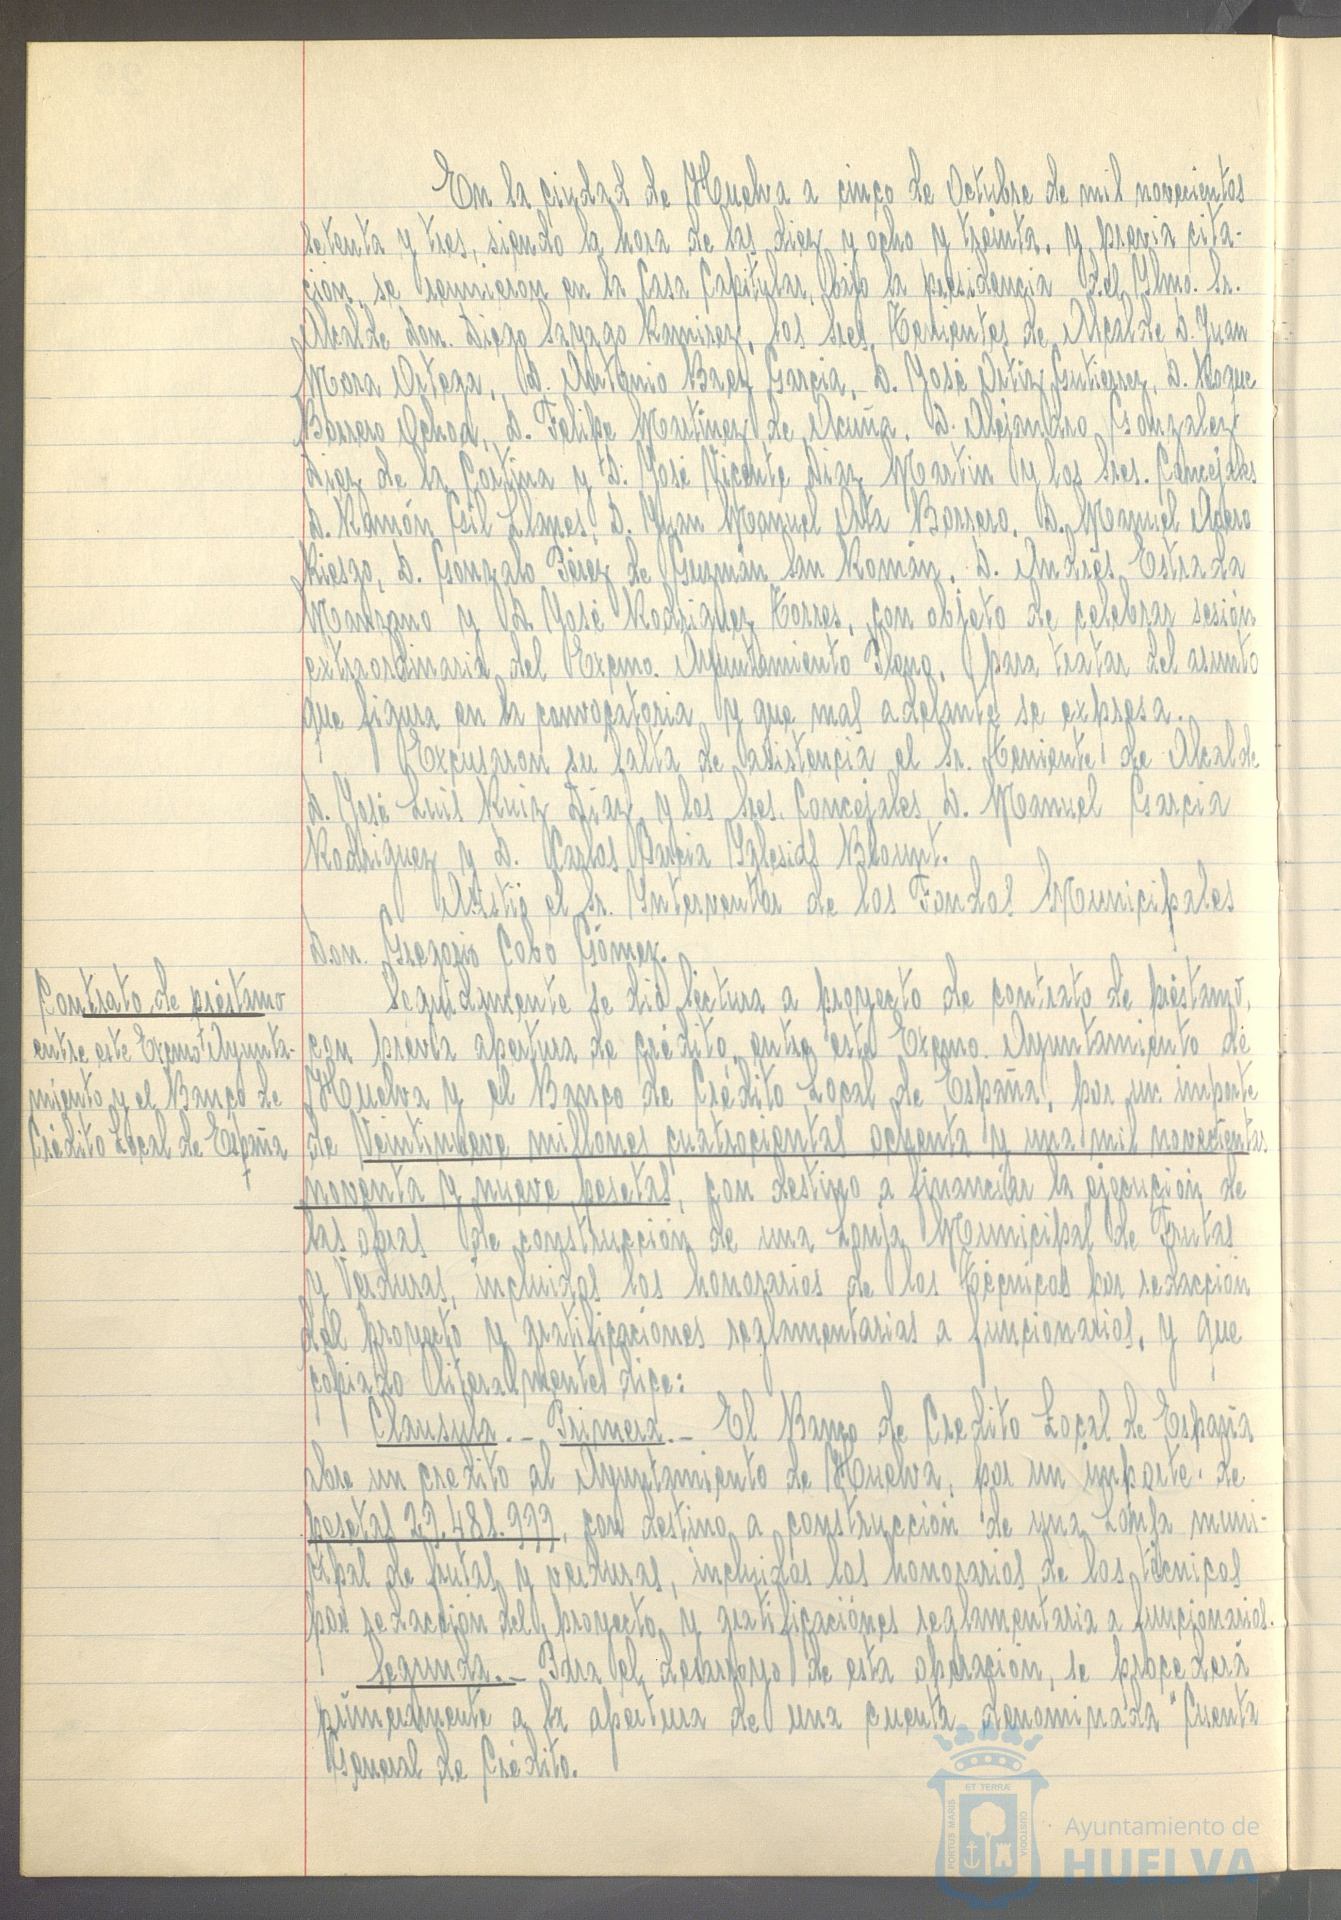 En la ciudad de Huelva a cinco de Octubre de mil novecientos
setenta y tres, siendo la hora de las diez y ocho y treinta, y previa cita-
ción, se reunieron en la Casa Capitular, bajo la presidencia del Ylmo. Sr.
Alcalde don Diego Sayago Ramirez, los Sres. Tenientes de Alcalde D. Juan
Mora Ortega, D. Antonio Baez Garcia, D. José Ortiz Gutierrez, D. Roque
Borrero Ochoa, D. Felipe Martinez de Acuña, D. Alejandro Gonzalez
Diez de la Cortina y D. José Vicente Diaz Martin y los Sres. Concejales
D. Ramón Gil Llanes, D. Juan Manuel Orta Borrero, D. Manuel Agero
Riesgo, D. Gonzalo Pérez de Guzmán San Román, D. Andrés Estrada
Manzano y D. José Rodriguez Torres, con objeto de celebrar sesión
extraordinaria del Excmo. Ayuntamiento Pleno, para tratar del asunto
que figura en la convocatoria y que mas adelante se expresa.
Excusaron su falta de asistencia el Sr. Teniente de Alcalde
D. José Luis Ruiz Diaz y los Sres. Concejales D. Manuel Garcia
Rodriguez y D. Carlos Barcia Yglesias Blount.
Asistió el Sr. Ynterventor de los Fondos Municipales
don Gregorio Cobo Gómez.
Contrato de préstamo
entre este Excmo. Ayunta-
miento y el Banco de
Crédito Local de España
Seguidamente se dió lectura a proyecto de contrato de préstamo,
con previa apertura de crédito, entre este Excmo. Ayuntamiento de
Huelva y el Banco de Crédito Local de España, por un importe
de Veintinueve millones cuatrocientas ochenta y una mil novecientas
noventa y nueve pesetas, con destino a financiar la ejecución de
las obras de construcción de una Lonja Municipal de Frutas
y Verduras, incluidos los honorarios de los Técnicos por redacción
del proyecto y gratificaciónes reglamentarias a funcionarios, y que
copiado literalmente dice:
Clausula.- Primera.- El Banco de Credito Local de España
abre un credito al Ayuntamiento de Huelva, por un importe de
pesetas 29.481.999, con destino a construcción de una Lonja muni-
cipal de frutas y verduras, incluidos los honorarios de los técnicos
por redacción del proyecto y gratificaciónes reglamentaria a funcionarios.
Segunda.- Para el desarroyo de esta operación, se procederá
primeramente a la apertura de una cuenta denominada "Cuenta
General de Crédito.
PORTUS MARIS
ET TERRÆ
CUSTODIA
Ayuntamiento de
HUELVA